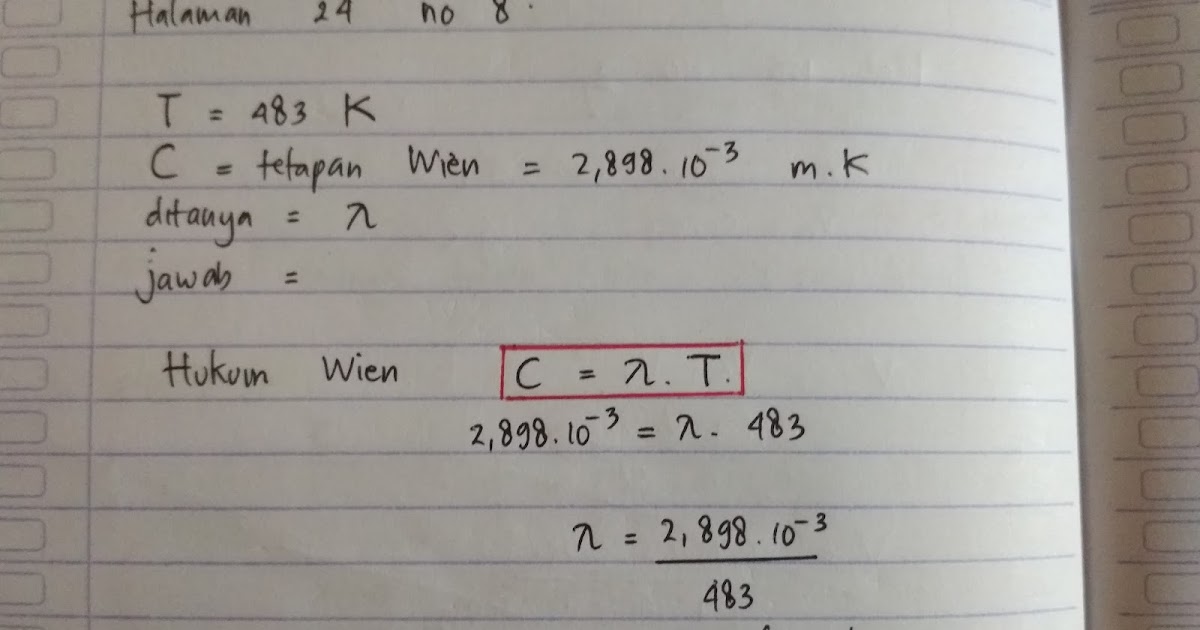 Halaman 24 no 8.
T = 483 K
C = tetapan Wien = 2,898.10⁻³ m.K
ditanya = λ
jawab =
Hukum Wien C = λ. T.
2,898.10⁻³ = λ. 483
λ = 2,898.10⁻³
483